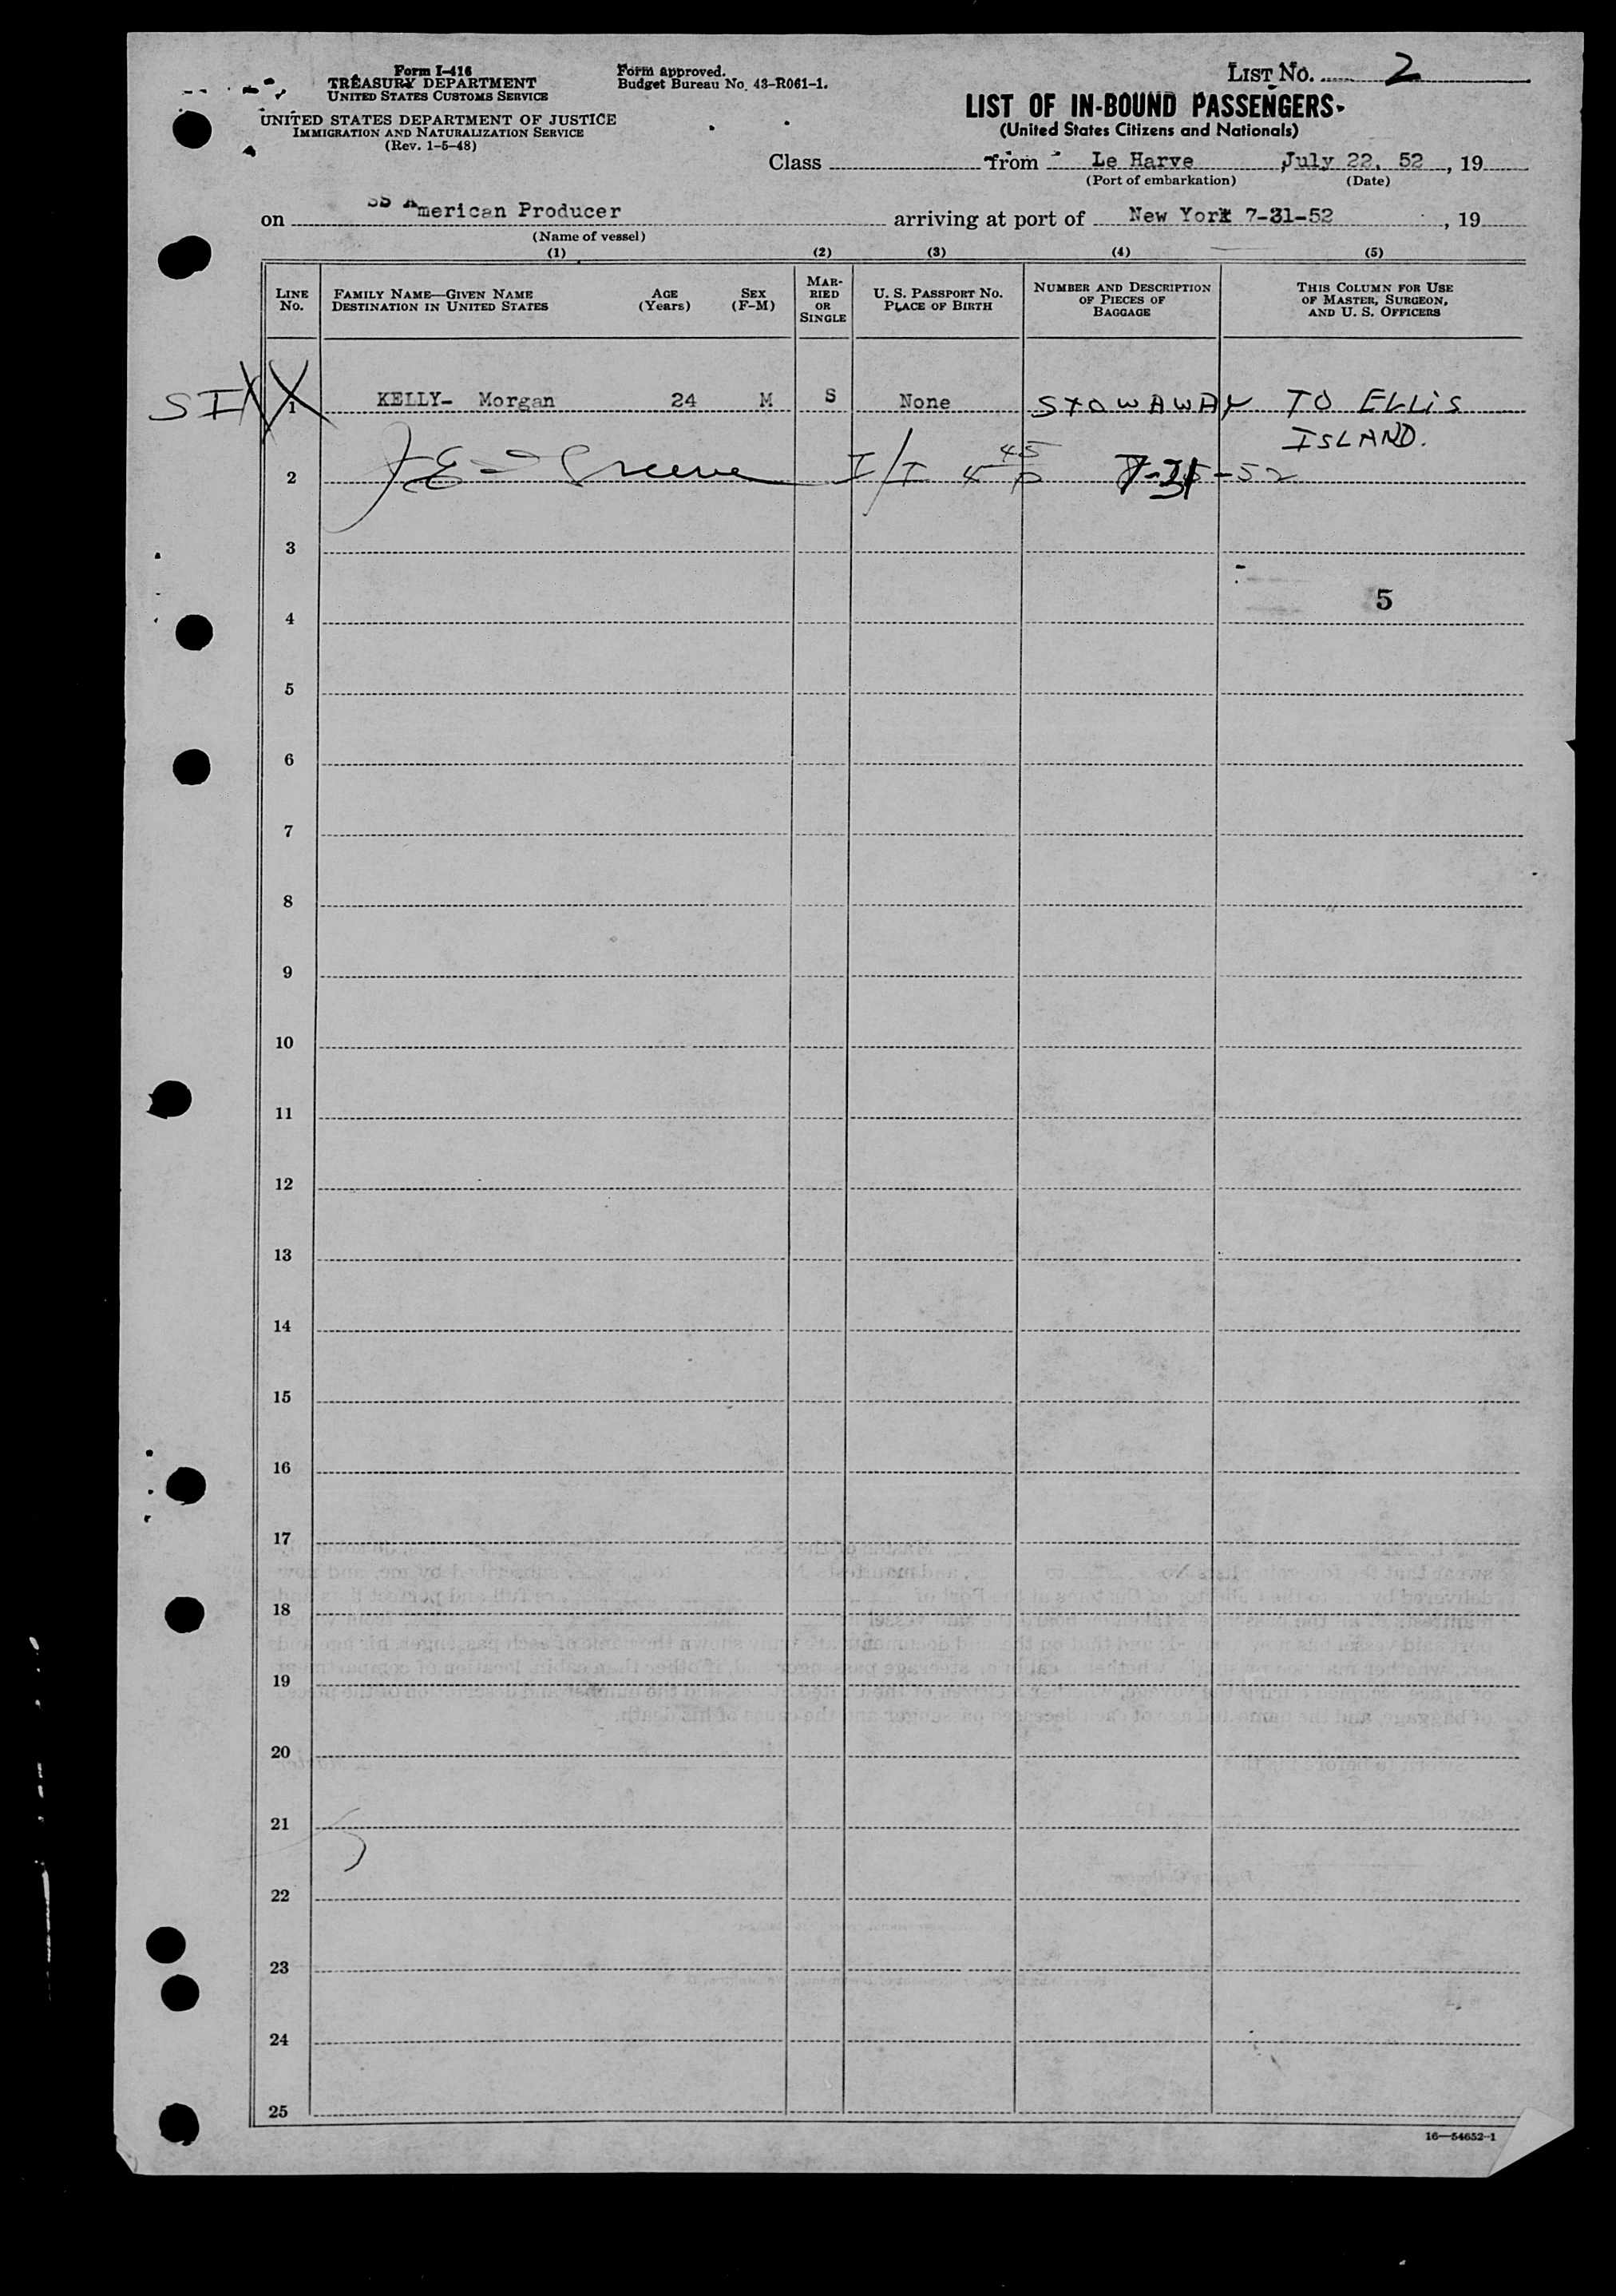 Form I-416
TREASURY DEPARTMENT
UNITED STATES CUSTOMS SERVICE
UNITED STATES DEPARTMENT OF JUSTICE
IMMIGRATION AND NATURALIZATION SERVICE
(Rev. 1-5-48)
Form approved.
Budget Bureau No. 43-R061-1.
LIST NO. 2
LIST OF IN-BOUND PASSENGERS
(United States Citizens and Nationals)
Class from Le Harve July 22, 52, 19
(Port of embarkation) (Date)
on SS American Producer arriving at port of New York 7-31-52, 19
(Name of vessel)
(1) (2) (3) (4) (5)
LINE NO.
FAMILY NAME—GIVEN NAME
DESTINATION IN UNITED STATES
AGE
(Years)
SEX
(F-M)
MAR-
RIED
OR
SINGLE
U. S. PASSPORT NO.
PLACE OF BIRTH
NUMBER AND DESCRIPTION
OF PIECES OF
BAGGAGE
THIS COLUMN FOR USE
OF MASTER, SURGEON,
AND U. S. OFFICERS
SI X 1 KELLY- Morgan 24 M S None STOWAWAY TO ELLIS
ISLAND.
2 I/I 45 -52
3
5
4
5
6
7
8
9
10
11
12
13
14
15
16
17
18
19
20
21
22
23
24
25
16—54652-1